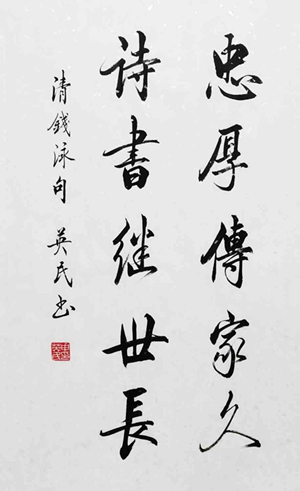 忠厚傳家久
詩書继世長
清錢泳句 英民书